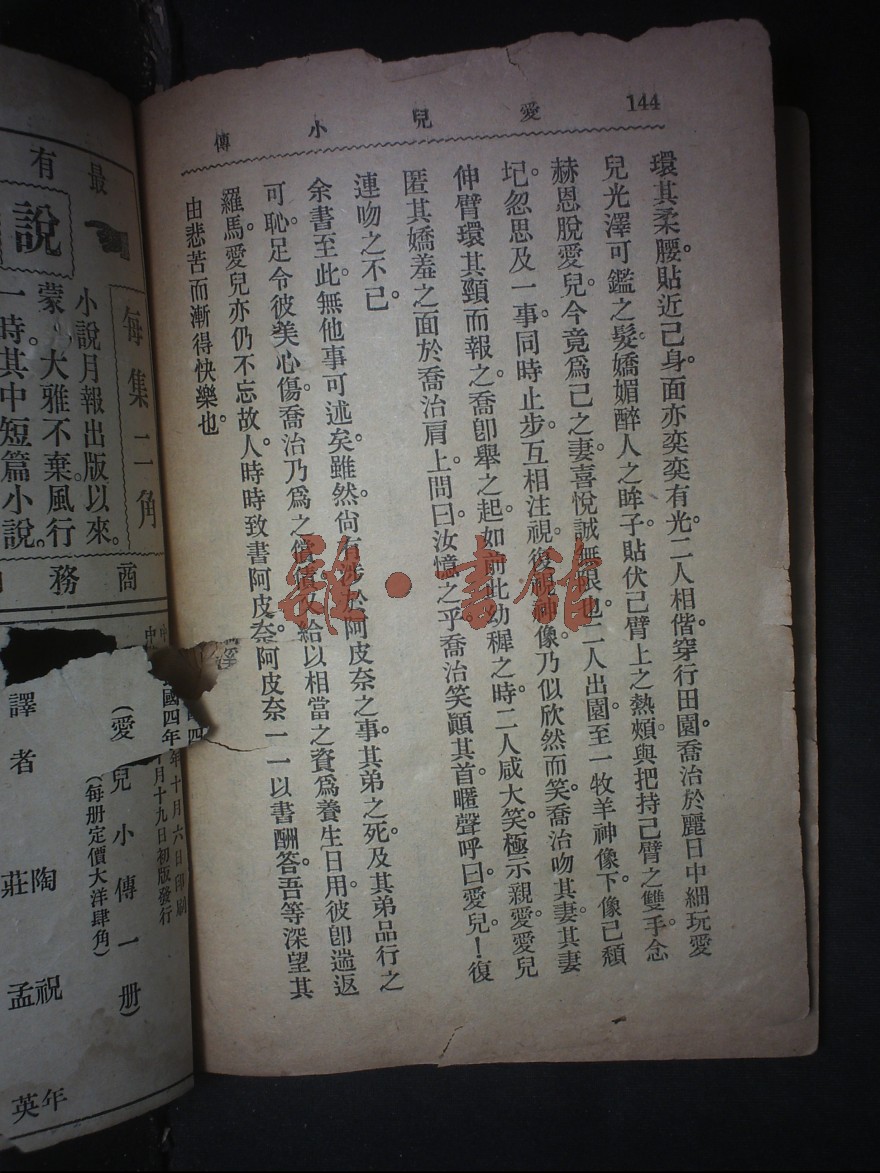 144
愛兒小傳
環其柔腰。貼近己身。面亦奕奕有光。二人相偕穿行田園。喬治於麗日中細玩愛
兒光澤可鑑之髮。嬌媚醉人之眸子。貼伏己臂上之熱頰。與把持己臂之雙手。念
赫恩脫愛兒。今竟爲己之妻。喜悅誠無垠也。二人出園。至一牧羊神像下。像已頹
圮。忽思及一事。同時止步。互相注視。復視神像。乃似欣然而笑。喬治吻其妻。其妻
伸臂環其頸而報之。喬卽舉之起。如前此幼穉之時。二人咸大笑。極示親愛。愛兒
匿其嬌羞之面於喬治肩上。問曰。汝憶之乎。喬治笑顧其首。暱聲呼曰。愛兒！復
連吻之不已。
余書至此。無他事可述矣。雖然。尙有涉於阿皮奈之事。其弟之死。及其弟品行之
可恥。足令彼美心傷。喬治乃爲之償債。又給以相當之資。爲養生日用。彼卽遄返
羅馬。愛兒亦仍不忘故人。時時致書阿皮奈。阿皮奈一一以書酬答。吾等深望其
由悲苦而漸得快樂也。
最有
說
每集二角
小說月報出版以來。
蒙大雅不棄。風行
一時。其中短篇小說。
商務
國四年十月六日印刷
月十九日初版發行
(愛兒小傳一册)
(每册定價大洋肆角)
譯者
陶祝年
莊孟英
雜·書館